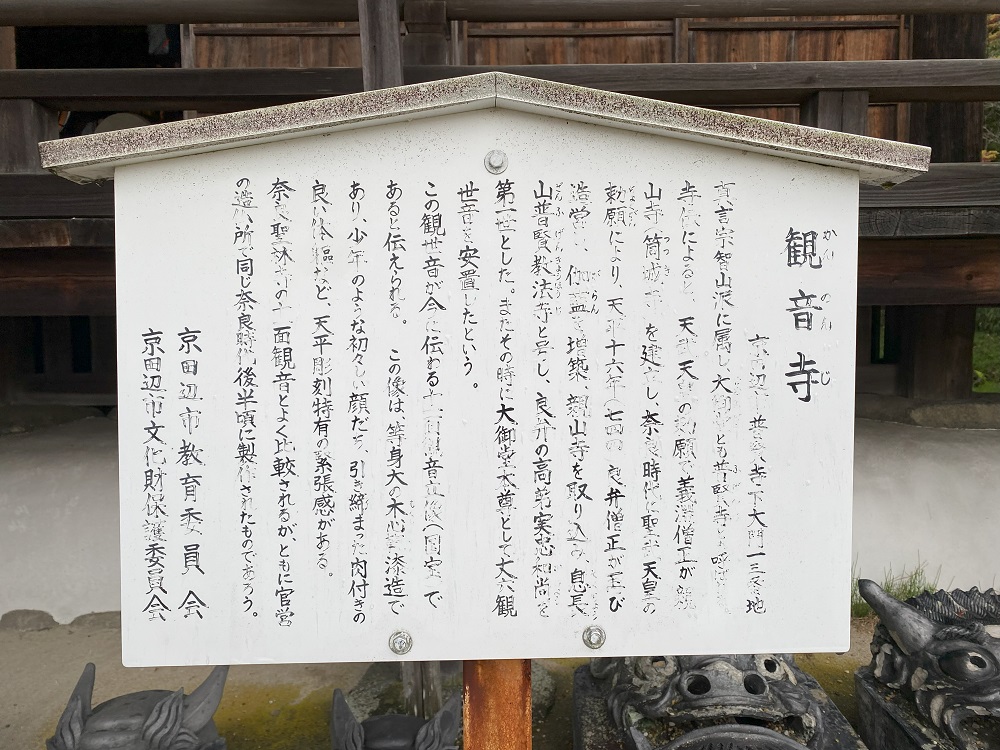 観音寺
かんのんじ
京田辺市普賢寺下大門一三番地
真言宗智山派に属し、大御堂とも普賢寺とも呼ばれ
寺伝によると、天武天皇の勅願で義淵僧正が親
山寺(筒城寺)を建立し、奈良時代に聖武天皇の
勅願により、天平十六年(七四四)良弁僧正が再び
造営し、伽藍を増築、親山寺を取り込み、息長
山普賢教法寺と号し、良弁の高弟実忠和尚を
第一世とした。またその時に大御堂本尊として丈六観
世音を安置したという。
この観世音が今に伝わる十一面観音立像(国宝)で
あると伝えられる。この像は、等身大の木心乾漆造で
あり、少年のような初々しい顔だち、引き締まった肉付きの
良い体軀など、天平彫刻特有の緊張感がある。
奈良聖林寺の十一面観音とよく比較されるが、ともに官営
の造仏所で同じ奈良時代後半頃に製作されたものであろう。
京田辺市教育委員会
京田辺市文化財保護委員会